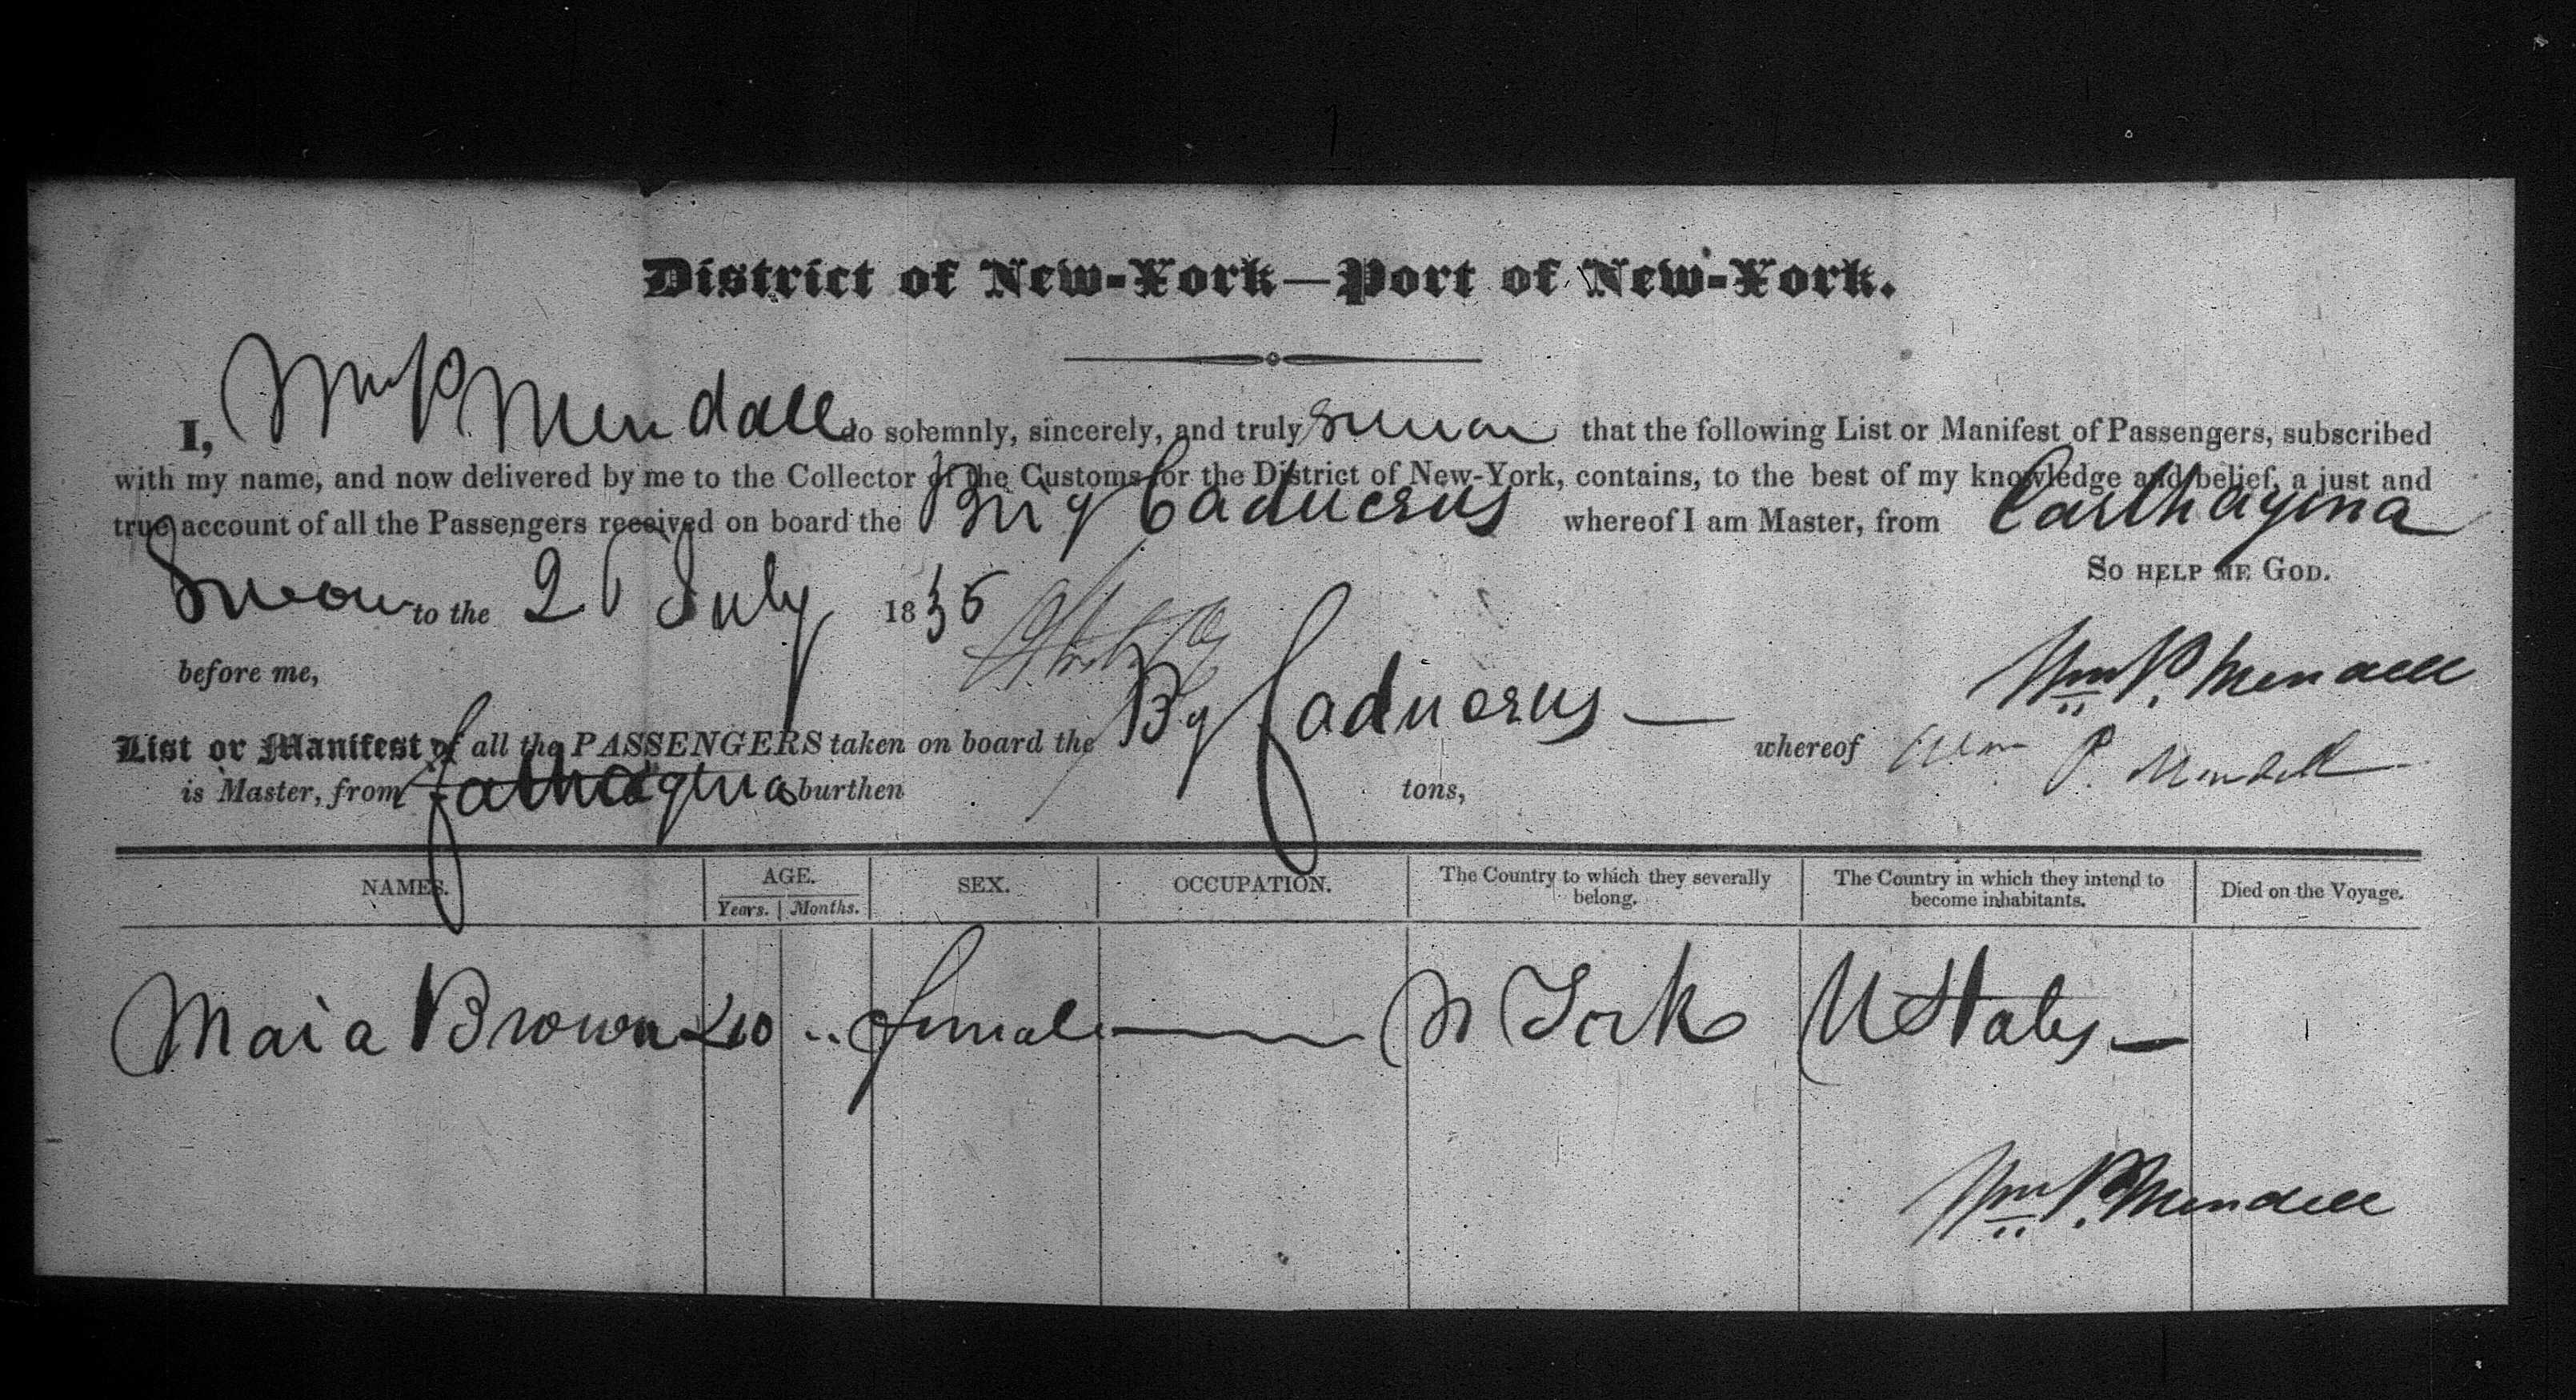 District of New-York—Port of New-York.
I, Wm P Mendall do solemnly, sincerely, and truly swear that the following List or Manifest of Passengers, subscribed
with my name, and now delivered by me to the Collector of the Customs for the District of New-York, contains, to the best of my knowledge and belief, a just and
true account of all the Passengers received on board the Brig Caduceus whereof I am Master, from Carthagena
So help me God.
Sworn to the 2 July 1836
before me,
Wm P. Mendell
List or Manifest of all the PASSENGERS taken on board the Bg Caduceus — whereof Wm P. Mendell
is Master, from Cathagena burthen tons,
NAMES. AGE. SEX. OCCUPATION. The Country to which they severally belong. The Country in which they intend to become inhabitants. Died on the Voyage.
Years. Months.
Maria Brown female N York U States
Wm P. Mendell